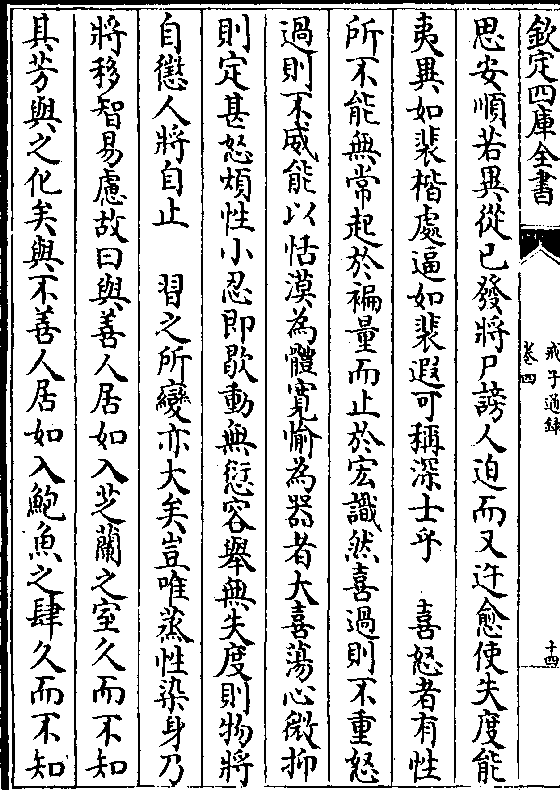 欽定四庫全書
戒子通錄
卷四
十四
思安順若異從已發將尸謗人迫而又迕愈使失度能
夷異如裴楷處逼如裴遐可稱深士乎　喜怒者有性
所不能無常起於褊量而止於宏識然喜過則不重怒
過則不威能以恬漠為體寬愉為器者大喜蕩心微抑
則定甚怒煩性小忍即歇動無愆容舉無失度則物將
自懲人將自止　習之所變亦大矣豈唯蒸性染身乃
將移智易慮故曰與善人居如入芝蘭之室久而不知
其芳與之化矣與不善人居如入鮑魚之肆久而不知